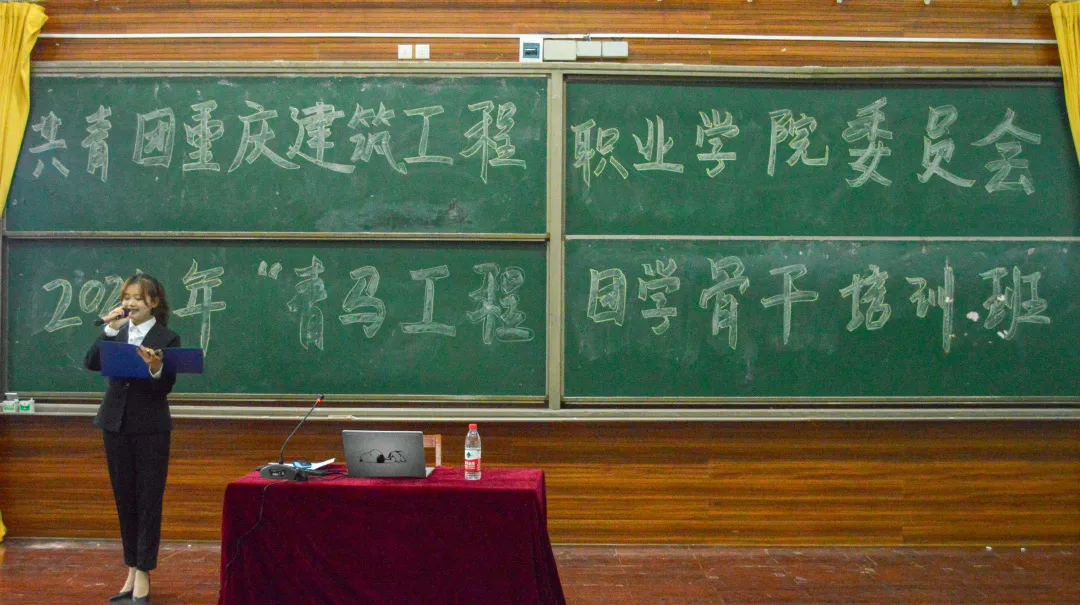 共青团重庆建筑工程职业学院委员会
202 年“青马工程 团学骨干培训班